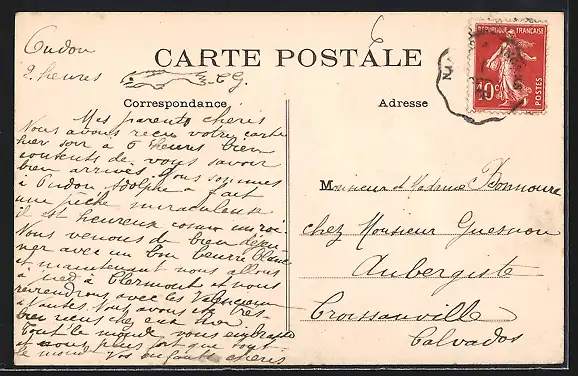 Oudon
2 heures
CARTE POSTALE
REPUBLIQUE FRANÇAISE
10 c
POSTES
Correspondance
Adresse
Mes parents chéris
Nous avons reçu votre carte
hier soir à 6 heures bien
contents de vous savoir
bien arrivés. Nous sommes
à Oudon Adolphe a fait
une pêche miraculeuse
il est heureux comme un roi.
Nous venons de bien déjeu
ner avec un bon beurre blanc
et maintenant nous allons
à pied à Clermont et nous
reviendrons avec les
à Nantes. Nous avons été très
bien reçus chez eux hier
Tout le monde vous embrasse
et nous plus fort que tout
le monde Vos enfants chéris
Monsieur et Madame Bonnoure
chez Monsieur Guesnon
Aubergiste
Croissanville
Calvados